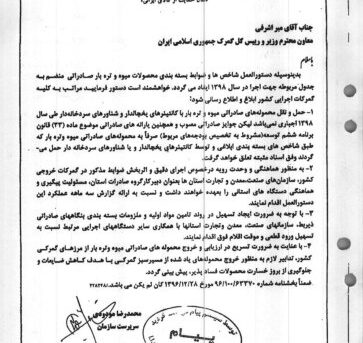 جناب آقای میر اشرفی
معاون محترم وزیر و رییس کل گمرک جمهوری اسلامی ایران
باسلام
بدینوسیله دستورالعمل شاخص ها و ضوابط بسته بندی محصولات میوه و تره بار صادراتی منضم به
جدول مربوطه جهت اجرا در سال ۱۳۹۸ ایفاد می گردد. خواهشمند است دستور فرمایید مراتب به کلیه
گمرکات اجرایی کشور ابلاغ و اطلاع رسانی شود:
۱- حمل و نقل محموله های میوه و تره بار با کانتینرهای یخچالدار و شناورهای سردخانه‌دار طی سال
۱۳۹۸ اجباری نمی‌باشد لیکن جوایز صادراتی مصوب و همچنین یارانه های صادراتی موضوع ماده (۳۳) قانون
برنامه ششم توسعه(مشروط به تخصیص بودجه‌های مربوط) صرفاً به محموله‌های میوه وتره بار که
طبق شاخص های بسته بندی ابلاغی و توسط کانتینرهای یخچالدار و یا شناورهای سردخانه دار حمل می-
گردند وفق اسناد مثبته تعلق خواهد گرفت.
۲- به منظور هماهنگی و وحدت رویه درخصوص اجرای دقیق و اثربخش ضوابط مذکور در گمرکات خروجی
کشور، سازمان‌های صنعت،معدن و تجارت استان ها بعنوان دبیرکارگروه صادرات استان، مسئولیت پیگیری و
هماهنگی دستگاه های استانی را بعهده خواهند داشت و نسبت به ارائه گزارش سه ماهه عملکرد این
دستورالعمل اقدام نمایند.
۳- با توجه به ضرورت ایجاد تسهیل در روند تامین مواد اولیه و ملزومات بسته بندی بنگاههای صادراتی
ذیربط، سازمانهای صنعت، معدن و تجارت استانها با همکاری سایر دستگاههای اجرایی مرتبط نسبت به
تسهیل ورود قطعی و موقت اقلام فوق اقدام نمایند.
۴- با عنایت به ضرورت تسریع در ارزیابی و خروج محموله های صادراتی میوه وتره بار از مرزهای گمرکی
کشور، تدابیر لازم به منظور خروج محموله‌های یاد شده از مسیرسبز گمرکی با هدف کاهش ضایعات و
جلوگیری از بروز خسارت محصولات فساد پذیر، پیش بینی گردد.
ضمناً بخشنامه شماره ۹۶/۱۰۰/۶۳۳۷۰ مورخ ۱۳۹۶/۱۲/۲۸ کان لم یکن می باشد.
محمدرضا مودودی
سرپرست سازمان
پیام